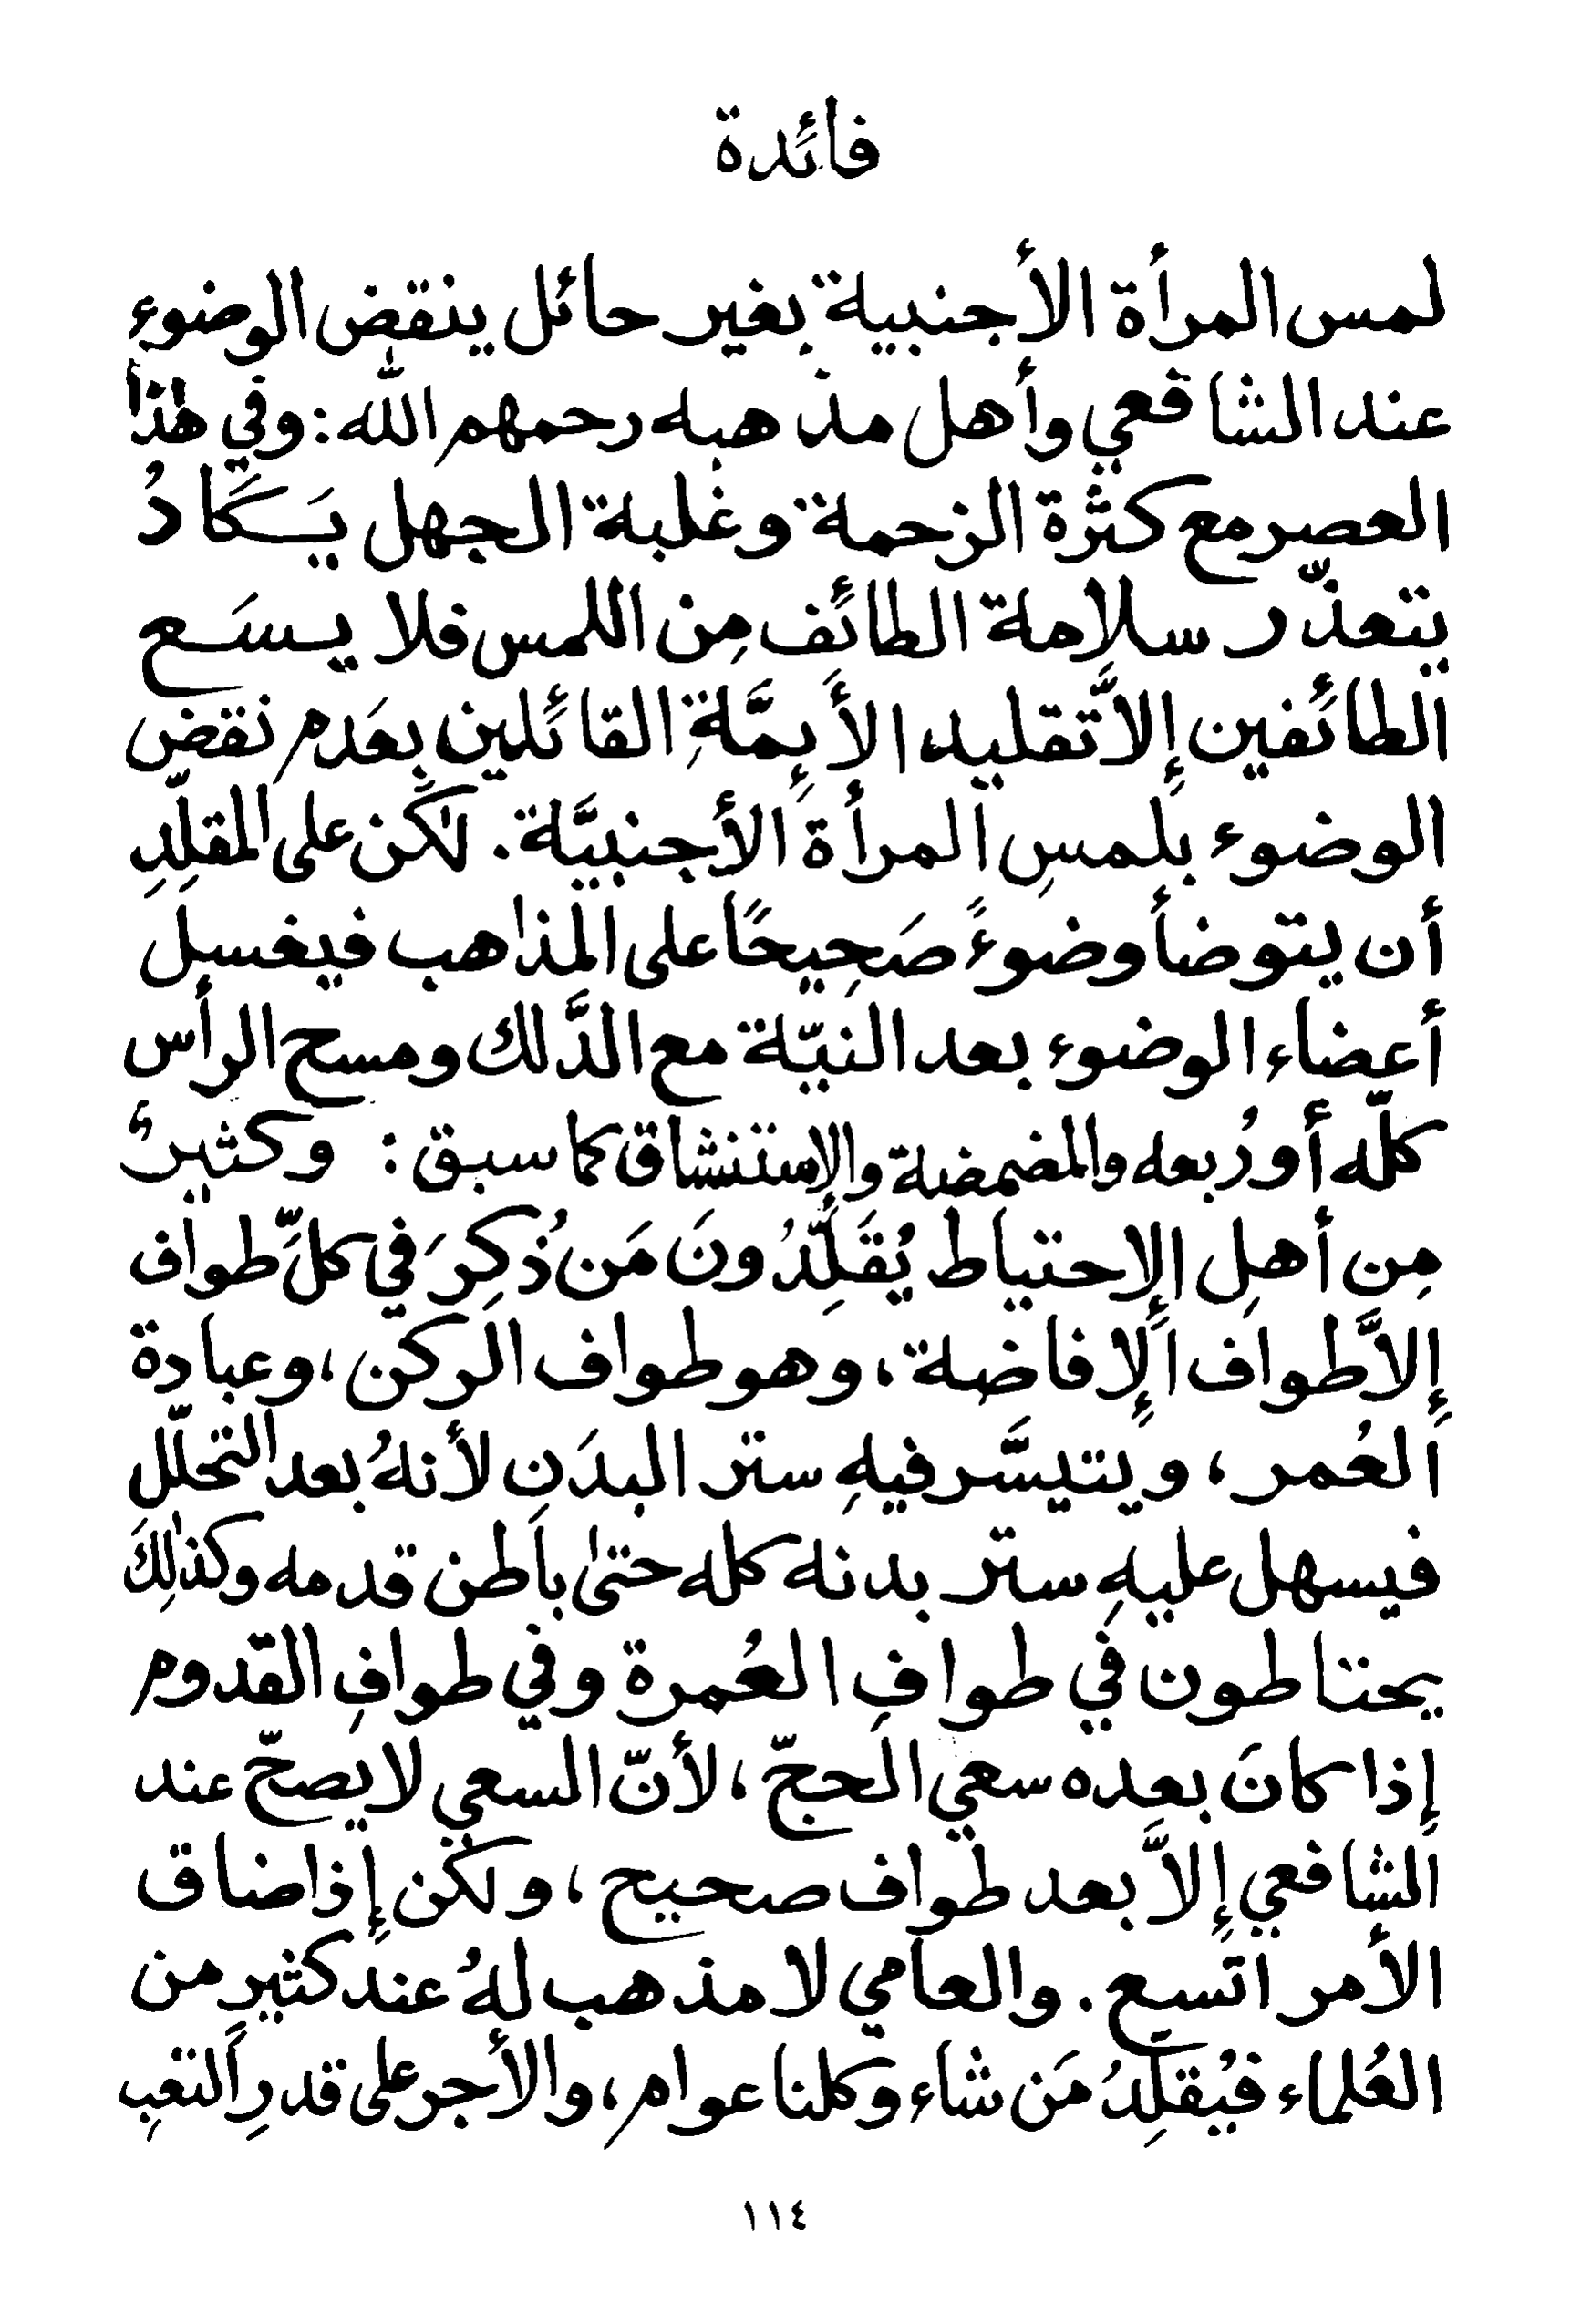 فائدة
لمس المرأة الأجنبية بغير حائل ينقض الوضوء
عند الشافعي وأهل مذهبه رحمهم الله : وفي هٰذا
العصر مع كثرة الزحمة وغلبة الجهل يَكَادُ
يتعذّر سلامة الطائف مِن اللمس فلا يسَع
الطائفين إلاَّ تقليد الأَئِمَّةِ القائلين بعَدم نقض
الوضوء بلمسِ المرأة الأجنبيَّة . لٰكن على المقلِّدِ
أن يتوضأ وضوءً صَحِيحًا على المذاهب فيغسل
أعضاء الوضوء بعد النيّة مع الدَّلك ومسح الرأس
كلّه أو رُبعه والمضمضة والإستنشاق كما سبق : وكثيرٌ
مِن أهلِ الإحتياط يُقَلِّدُونَ مَن ذُكِرَ في كلِّ طواف
إلاَّ طواف الإفاضة ، وهو طواف الركن ، وعبادة
العُمر ، ويتيسَّر فيهِ ستر البدَنِ لأنهُ بعد التحلّل
فيسهل عليهِ ستر بدنه كله حتىٰ باطن قدمه وكذٰلِكَ
يحتاطون في طوافِ العُمرة وفي طوافِ القدوم
إذا كانَ بعده سعي الحجّ ، لأنّ السعي لا يصحّ عند
الشافعي إلاَّ بعد طواف صحيح ، ولكن إذا ضاق
الأمر اتسع . والعامي لا مذهب لهُ عند كثيرٍ من
العُلماء فيُقلِّدُ مَن شاء وكلنا عوام ، والأجر على قدرِ التعبِ
١١٤